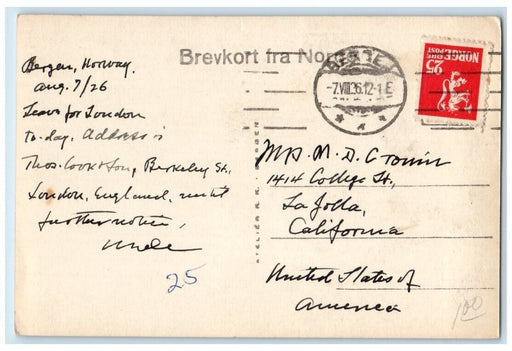 Brevkort fra Nor
BERGEN
-7.VIII.36.12-1 E
NORGE
POST
25
ØRE
Bergen, Norway.
Aug. 7/26
Leave for London
to-day. Address is
Thos. Cook & Son, Berkeley St.,
London, England, until
further notice,
Uncle
25
ATELIER K.K. BERGEN
Mrs. M. D. Cronin
1414 College St.,
La Jolla,
California
United States of
America
100